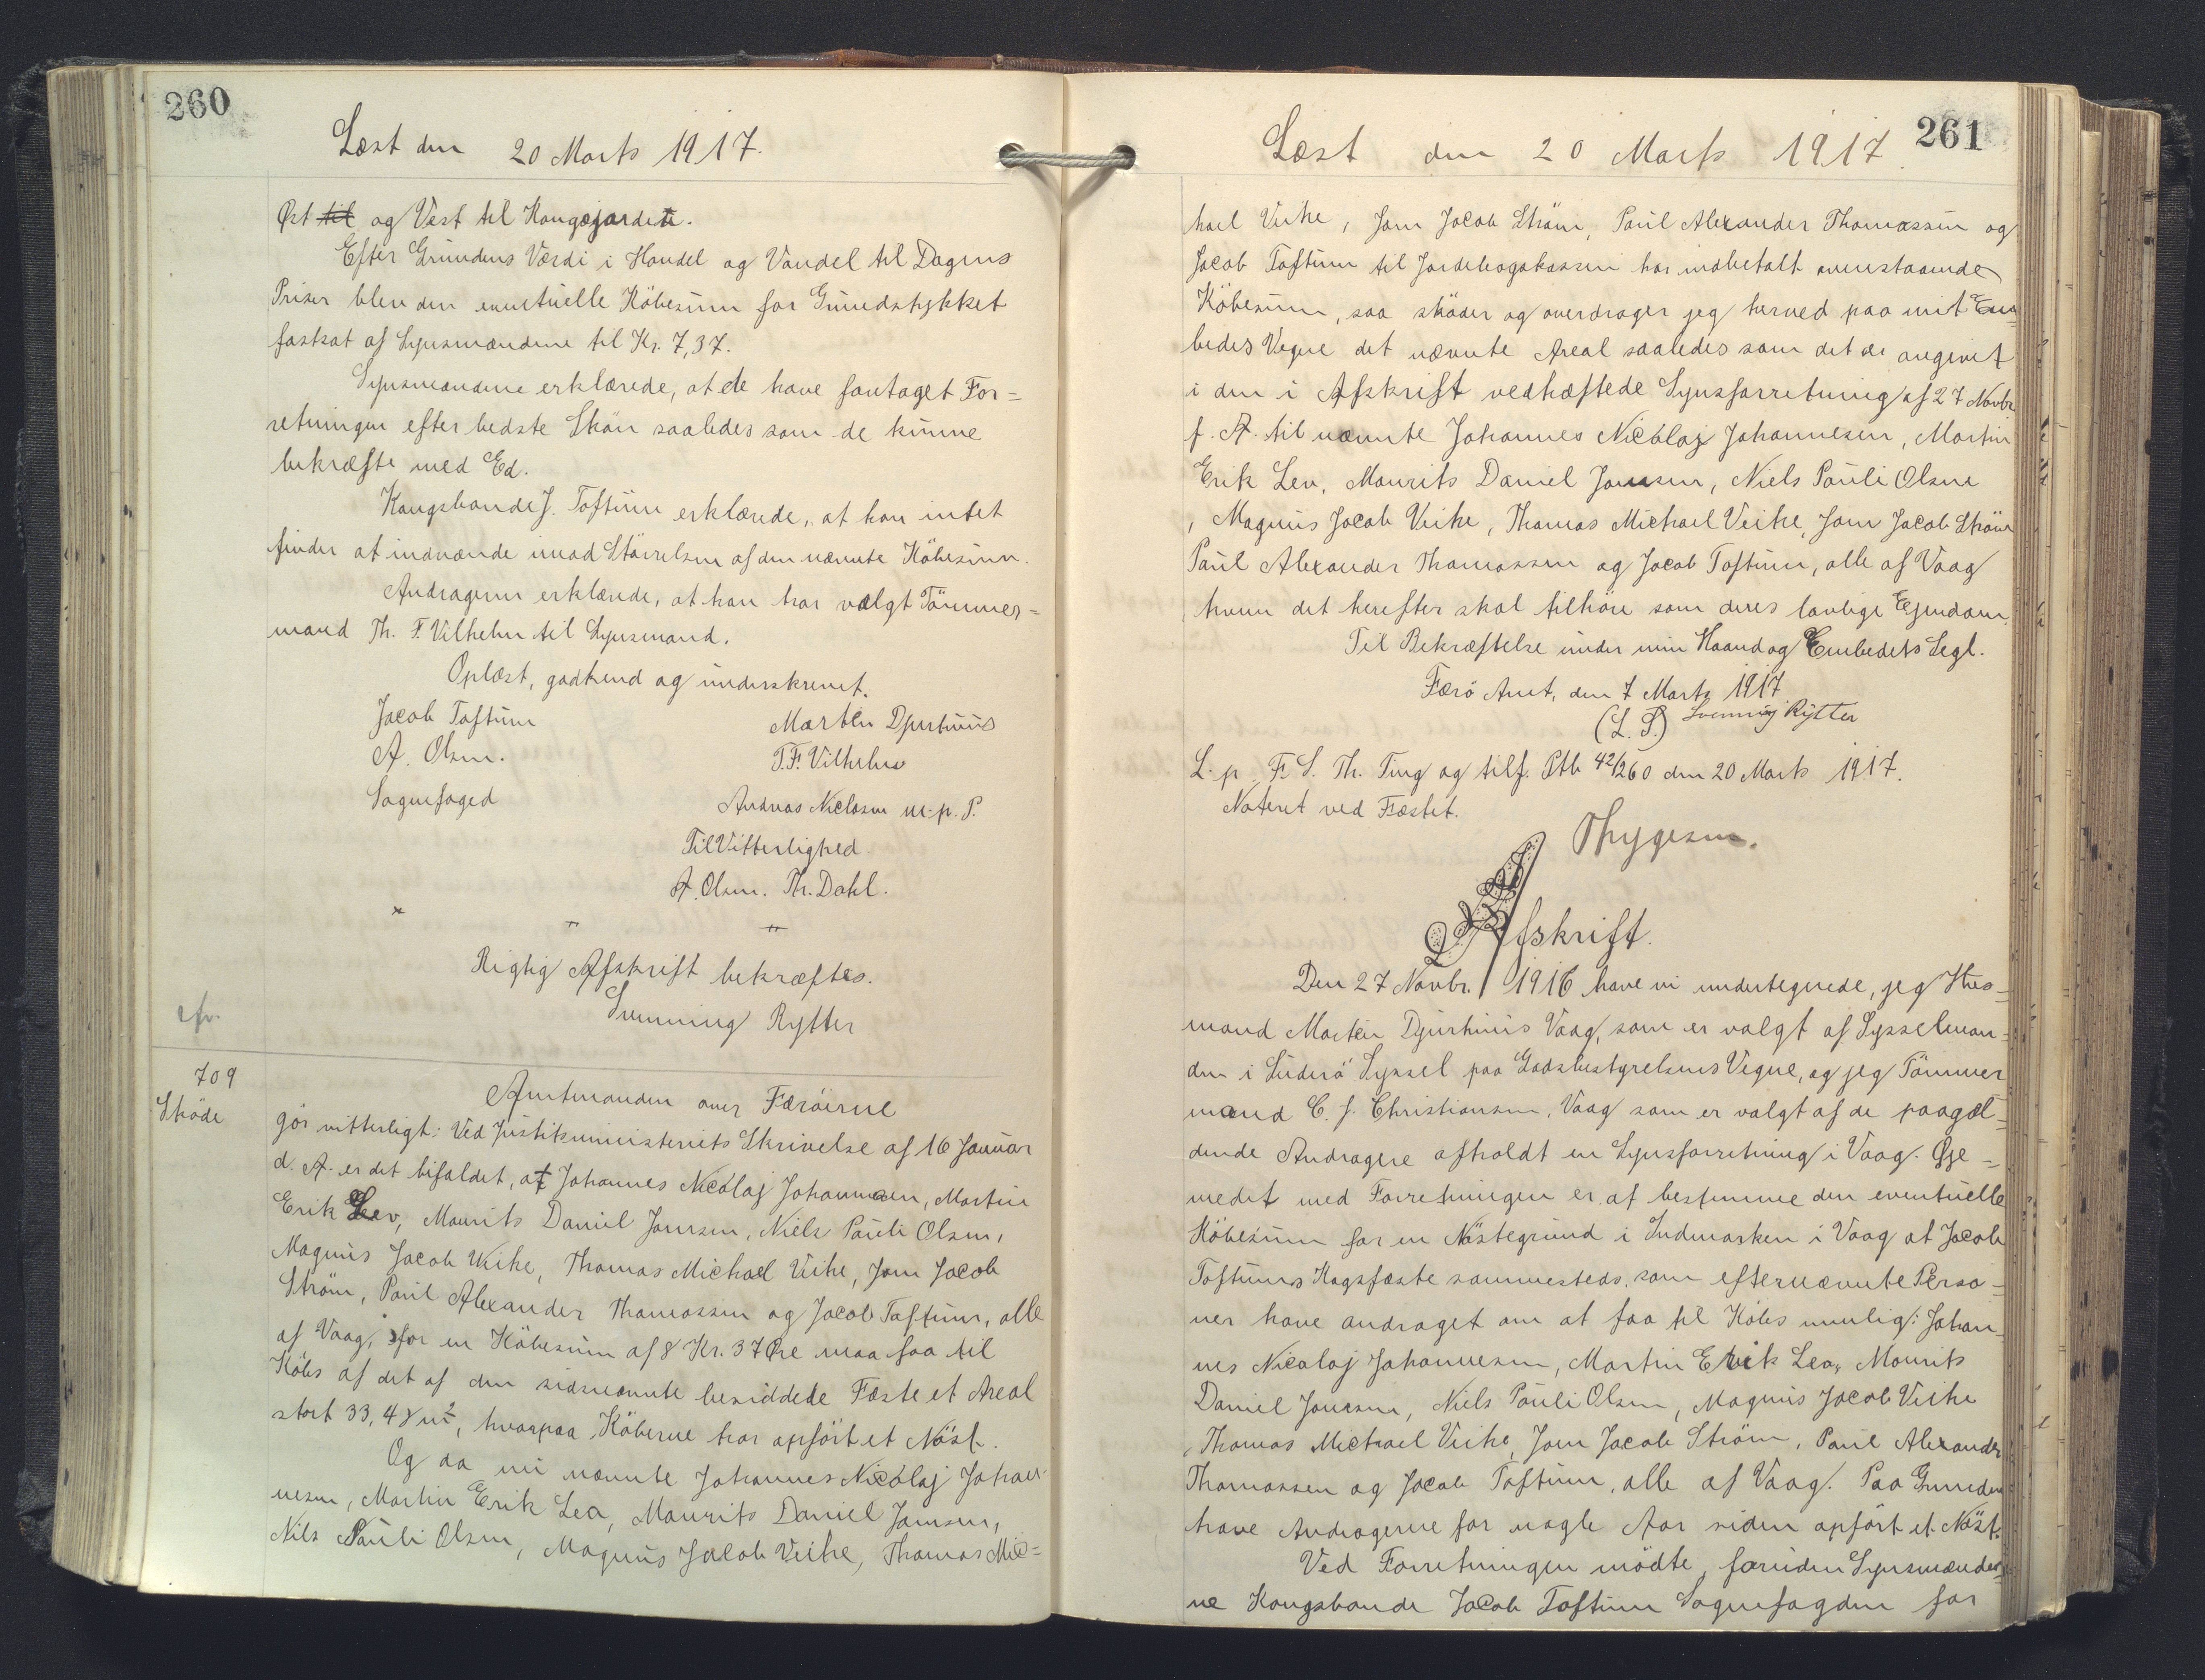 260
Læst den 20 Marts 1917.
Øst til og Vest til Kongejorden.
Efter Grundens Værdi i Handel og Vandel til Dagens
Priser blev den eventuelle Købesum for Grundstykket
fastsat af Synsmændene til Kr. 7,37.
Synsmændene erklærede, at de have foretaget For=
retningen efter bedste Skøn saaledes som de kunne
bekræfte med Ed.
Kongsbonde J. Toftum erklærede, at han intet
finder at indvende imod Størrelsen af den nævnte Købesum.
Andrageren erklærede, at han har valgt Tömmer=
mand Th. F. Vilhelm til Synsmand.
Oplæst, godkend og underskrevet.
Jacob Toftum Marten Djurhuus
A. Olsen. T. F. Vilhelm
Sognefoged Andreas Niclasen m. p. P.
Til Vitterlighed.
A. Olsen. Th. Dahl.
Rigtig Afskrift bekræftes.
Svenning Rytter
cfr.
709
Skøde
Amtmanden over Færöerne
gör vitterligt: Ved Justitsministeriets Skrivelse af 16 Januar
d. A. er det bifaldet, at Johannes Nicolaj Johannesen, Martin
Erik Lev, Maurits Daniel Joensen, Niels Pauli Olsen,
Magnus Jacob Veihe, Thomas Michael Veihe, Joen Jacob
Ström, Paul Alexander Thomassen og Jacob Toftum, alle
af Vaag, for en Købesum af 8 Kr. 37 Øre maa faa til
Købs af det af den sidsnævnte besiddede Fæste et Areal
stort 33,48 m², hvorpaa Köberne har opført et Nöst.
Og da nu nævnte Johannes Nicolaj Johan
nesen, Martin Erik Lea, Maurits Daniel Joensen,
Nils Pauli Olsen, Magnus Jacob Veihe, Thomas Mic=
261
Læst den 20 Marts 1917
hael Veihe, Joen Jacob Ström, Paul Alexander Thomassen og
Jacob Toftum til Jordebogskassen har indbetalt ovenstaaende
Köbesum, saa sköder og overdrager jeg herved paa mit Em=
bedes Vegne det nævnte Areal saaledes som det er angivet
i den i Afskrift vedhæftede Synsforretning af 27 Novbr
f. A. til nævnte Johannes Nicolaj Johannesen, Martin
Erik Lev, Maurits Daniel Joensen, Niels Pauli Olsen
, Magnus Jacob Veihe, Thomas Michael Veihe, Joen Jacob Ström
Paul Alexander Thomassen og Jacob Toftum, alle af Vaag
hvem det herefter skal tilhöre som deres lovlige Ejendom.
Til Bekræftelse under min Haand og Embedets Segl.
Færö Amt, den 7 Marts 1917
(L. S.) Svenning Rytter
L. p. F. S. Th. Ting og tilf. Ptb 42/260 den 20 Marts 1917.
Noteret ved Fæstet.
Thygesen.
Afskrift.
Den 27 Novbr. 1916 have vi undertegnede, jeg Hus=
mand Marten Djurhuus Vaag, som er valgt af Sysselman=
den i Suderö Syssel paa Godsbestyrelsens Vegne, og jeg Tömmer
mand C. J. Christiansen, Vaag som er valgt af de paagæl=
dende Andragere afholdt en Synsforretning i Vaag. Øje=
medet med Forretningen er at bestemme den eventuelle
Köbesum for en Nöstegrund i Indmarken i Vaag at Jacob
Toftums Kogsfæste sammesteds, som efternævnte Perso=
ner have andraget om at faa til Købs nemlig: Johan
nes Nicolaj Johannesen, Martin Erik Lea, Maurits
Daniel Joensen, Niels Pauli Olsen, Magnus Jacob Veihe
, Thomas Michael Veihe, Joen Jacob Ström, Paul Alexander
Thomassen og Jacob Toftum, alle af Vaag. Paa Grunden
have Andragerne for nogle Aar siden opført et Nöst.
Ved Forretningen mödte, foruden Synsmænde=
ne Kongsbonde Jacob Toftum Sognefogden for